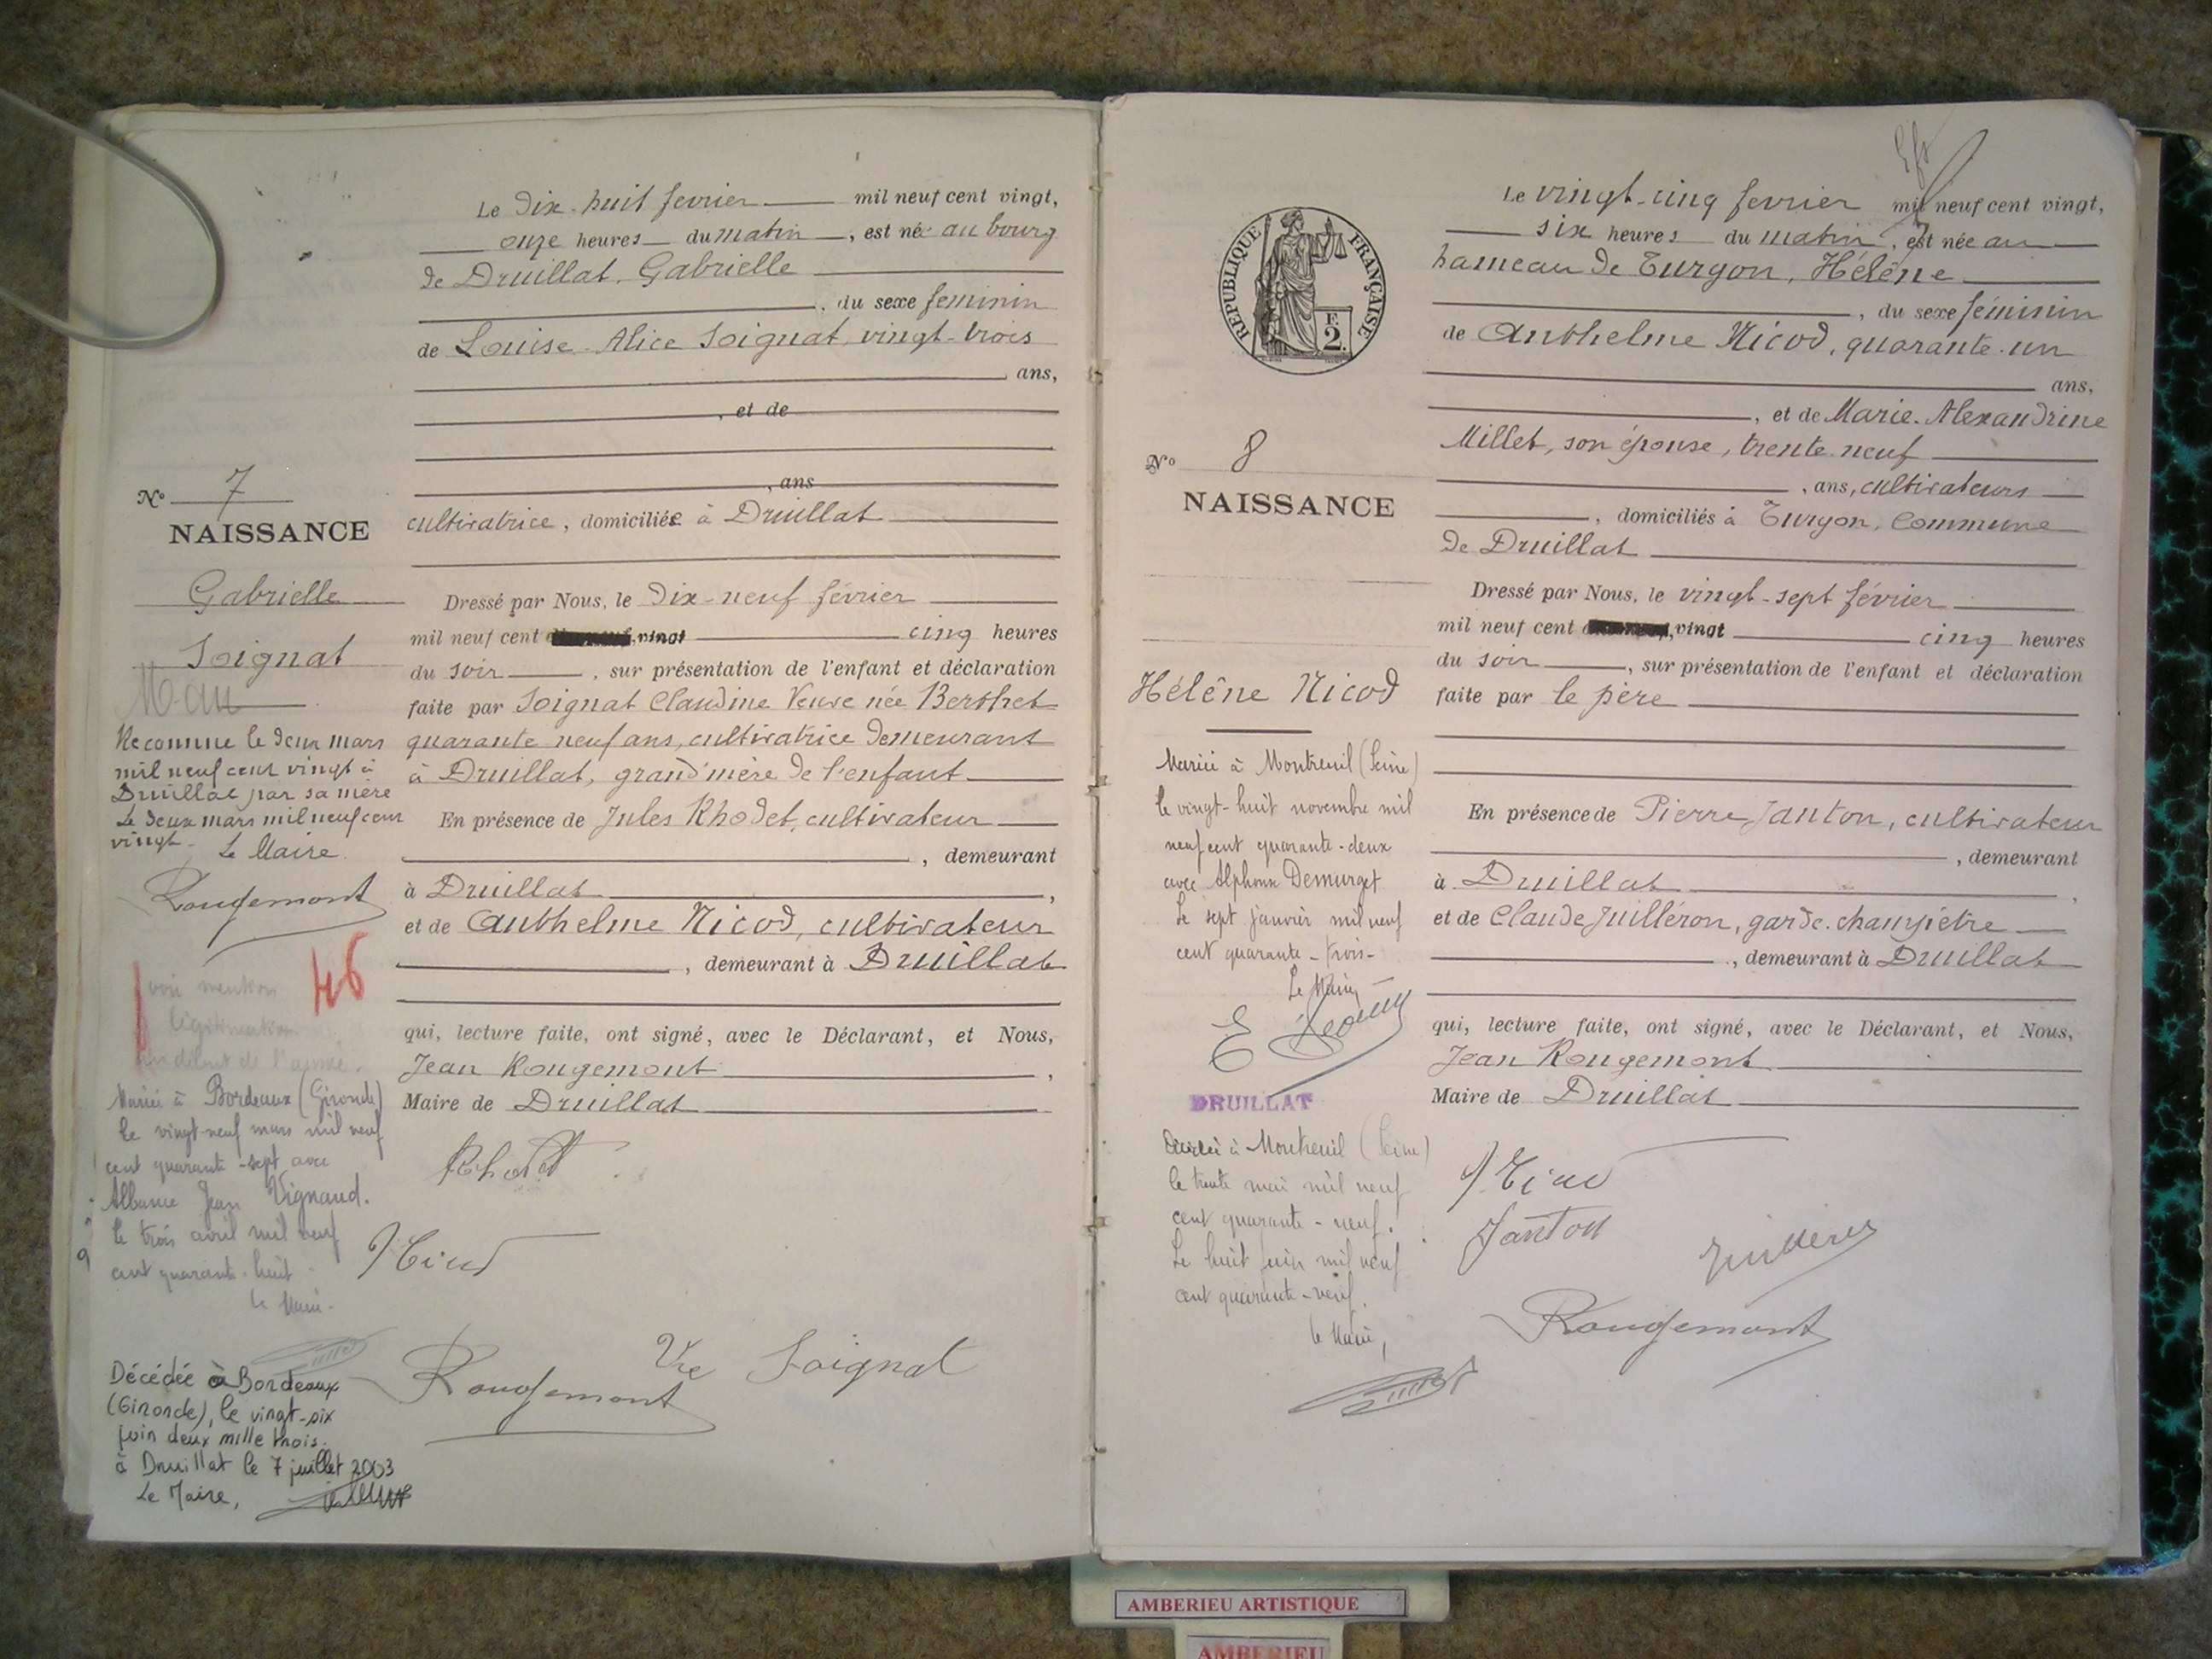 Le dix-huit fevrier mil neuf cent vingt,
onze heures du matin, est né au bourg
de Druillat, Gabrielle
, du sexe feminin
de Louise-Alice Soignat, vingt-trois
ans,
, et de
, ans
cultivatrice, domiciliée à Druillat
Nº 7
NAISSANCE
Gabrielle
Soignat
Reconnue le deux mars
mil neuf cent vingt à
Druillat par sa mère
Le deux mars mil neuf cent
vingt. Le Maire
Rougemont
46
voir mention
légitimation
au début de l'année.
Mariée à Bordeaux (Gironde)
le vingt-neuf mars mil neuf
cent quarante-sept avec
Jean Vignaud.
Le trois avril mil neuf
cent quarante-huit
Le Maire.
Décédée à Bordeaux
(Gironde), le vingt-six
juin deux mille trois.
à Druillat le 7 juillet 2003
Le Maire,
Dressé par Nous, le dix-neuf février
mil neuf cent vingt cinq heures
du soir, sur présentation de l'enfant et déclaration
faite par Soignat Claudine Veuve née Berthet
quarante neuf ans, cultivatrice demeurant
à Druillat, grand'mère de l'enfant
En présence de Jules Rhodet, cultivateur
, demeurant
à Druillat,
et de Anthelme Nicod, cultivateur
, demeurant à Druillat
qui, lecture faite, ont signé, avec le Déclarant, et Nous,
Jean Rougemont,
Maire de Druillat
Rhodet
Nicod
Vve Soignat
Rougemont
Le vingt-cinq fevrier mil neuf cent vingt,
six heures du matin, est née au
hameau de Turgon, Hélène
, du sexe féminin
de Anthelme Nicod, quarante-un
ans,
, et de Marie-Alexandrine
Millet, son épouse, trente-neuf
, ans, cultivateurs
, domiciliés à Turgon, Commune
de Druillat
RÉPUBLIQUE FRANÇAISE
F.
2.
Nº 8
NAISSANCE
Hélène Nicod
Mariée à Montreuil (Seine)
le vingt-huit novembre mil
neuf cent quarante-deux
avec Alphonse Demurget
Le sept janvier mil neuf
cent quarante-trois-
Le Maire
DRUILLAT
à Montreuil (Seine)
le trente mai mil neuf
cent quarante-neuf.
Le huit juin mil neuf
cent quarante-neuf.
Le Maire,
Dressé par Nous, le vingt-sept février
mil neuf cent vingt cinq heures
du soir, sur présentation de l'enfant et déclaration
faite par le père
En présence de Pierre Janton, cultivateur
, demeurant
à Druillat,
et de Claude Juilléron, garde-champêtre
, demeurant à Druillat
qui, lecture faite, ont signé, avec le Déclarant, et Nous,
Jean Rougemont
Maire de Druillat
Nicod
Janton
Rougemont
AMBERIEU ARTISTIQUE
AMBERIEU